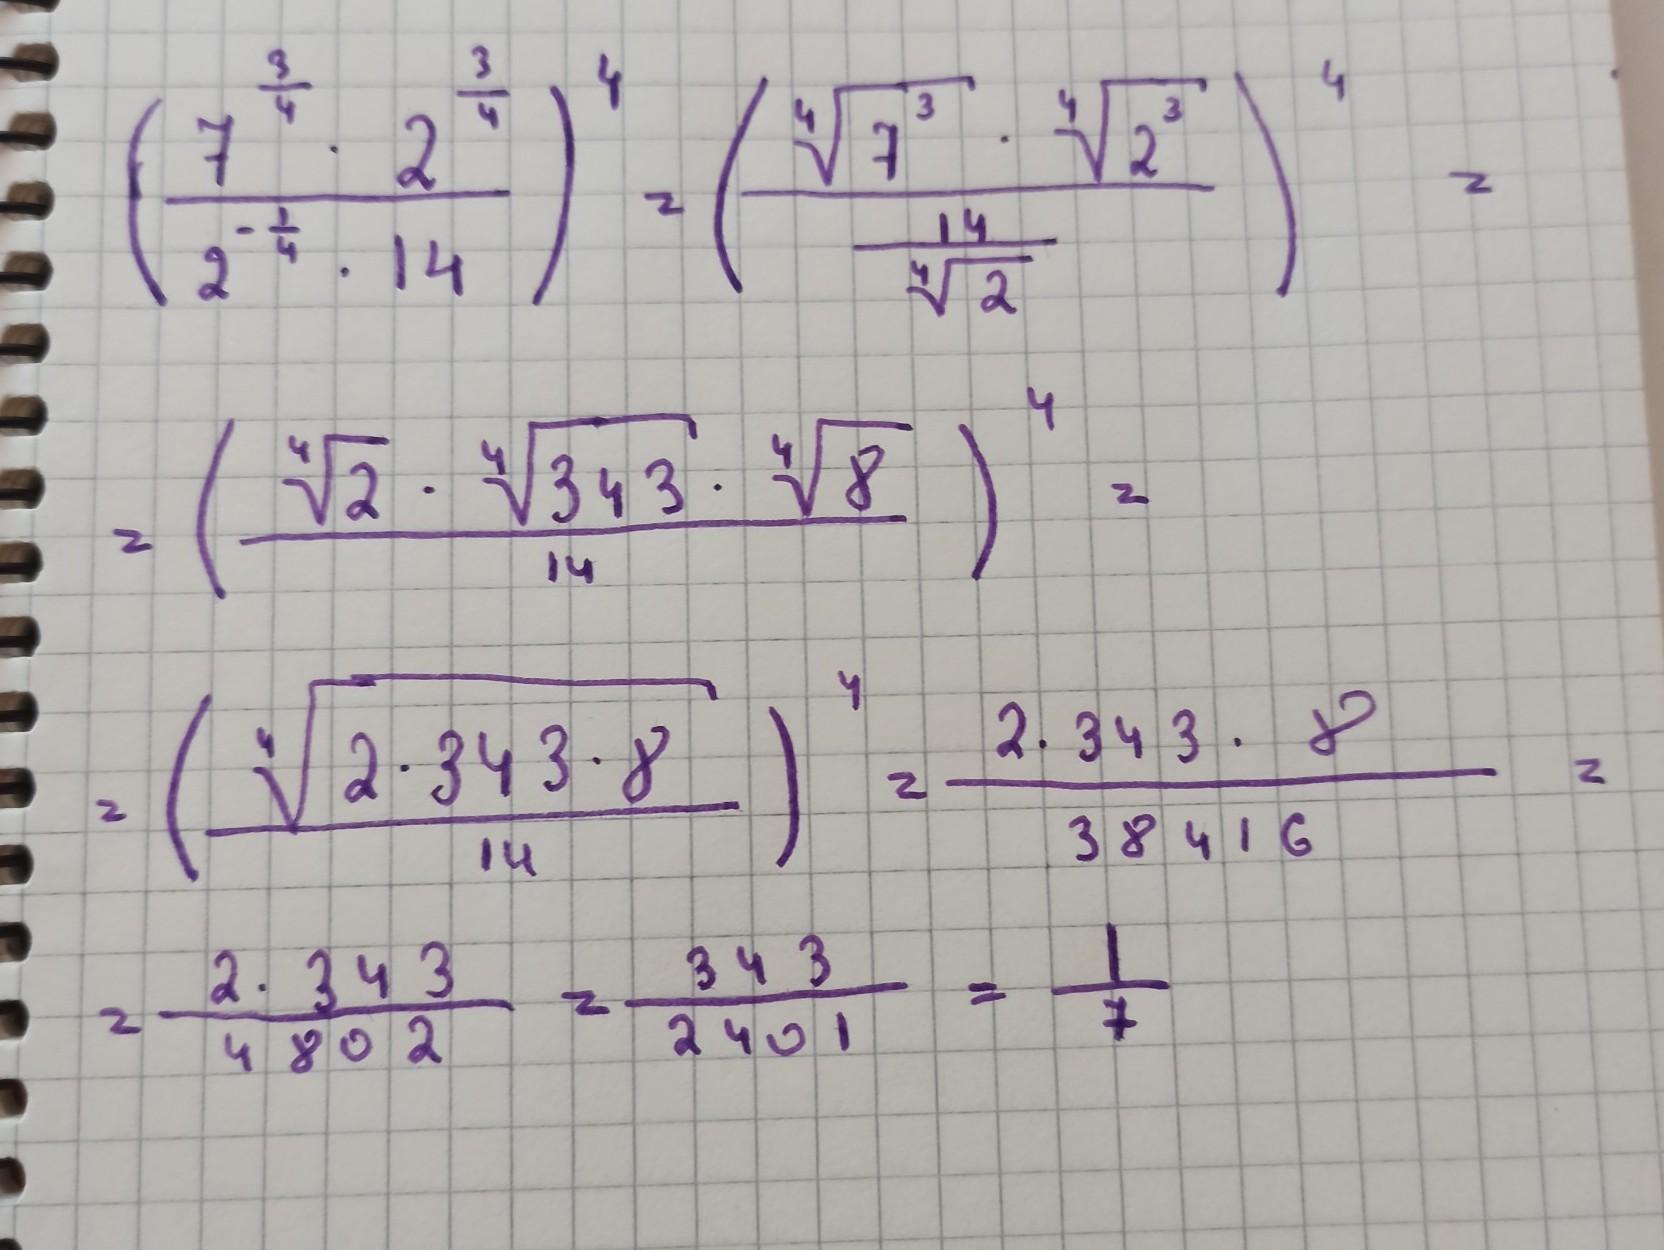 (7^{3/4} · 2^{3/4} / 2^{-1/4} · 14)^4 = (∜7^3 · ∜2^3 / 14/∜2)^4 =
= (∜2 · ∜343 · ∜8 / 14)^4 =
= (∜2·343·8 / 14)^4 = 2·343·8 / 38416 =
= 2·343 / 4802 = 343 / 2401 = 1/7